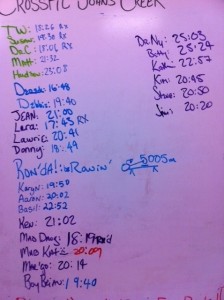 CROSSFIT JOHNS CREEK
TW: 15:26 RX
Susan: 19:30 RX
Dr.C: 15:01 RX
Matt: 2:32
25:08
16:48
Debbie: 19:40
JEAN: 21:05
Lara: 17:45 RX
Laurie: 20:41
Donny: 18:49
RON'DA! is Rowin' 5005m
Karyn: 19:50
Aaron: 20:02
Basil: 22:52
Kev: 21:02
Mas Doug: 18:19 Rx'd
Mas Kat: 20:09
Margo: 20:14
Boy Brian: 19:40
DaNy: 25:03
Betty: 25:24
Kat: 22:57
Kim: 20:45
Steve: 20:50
Javi: 20:20